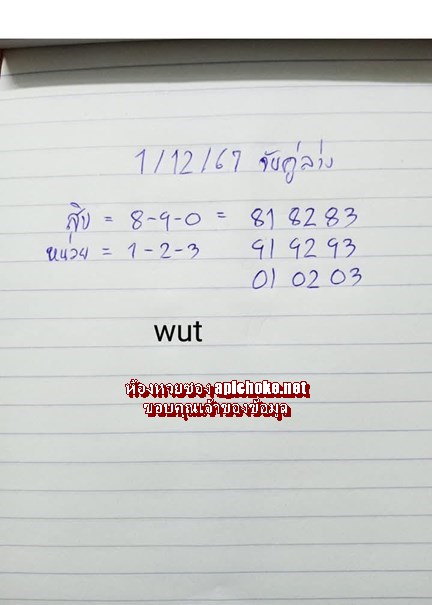 1/12/67 จับคู่ล่าง
สิบ = 8-9-0 = 81 82 83
หน่วย = 1-2-3 91 92 93
01 02 03
wut
ห้องหวยซอง apichoke.net
ขอบคุณเจ้าของข้อมูล